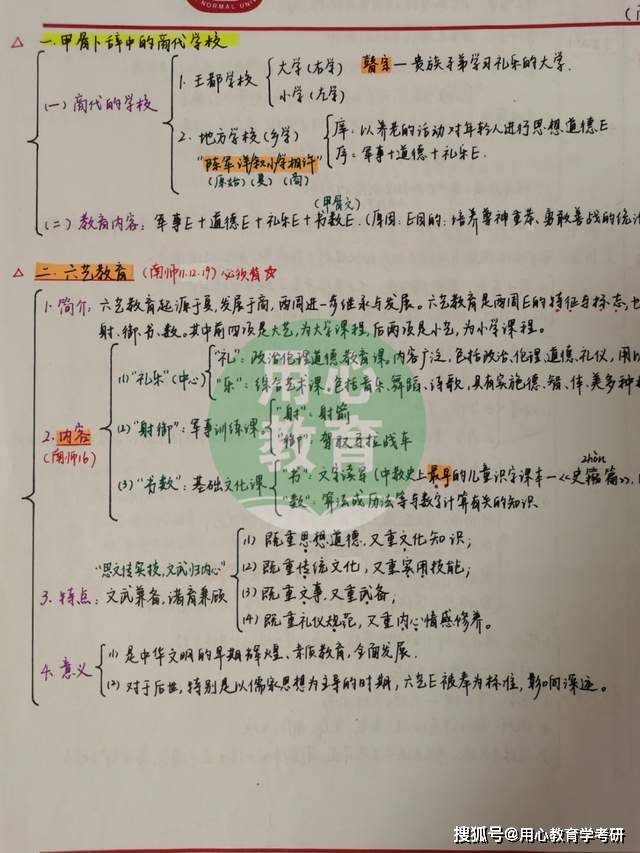 NORMAL UNI
一.甲骨卜辞中的商代学校
(一)商代的学校
1.王都学校
大学(右学) 瞽宗—贵族子弟学习礼乐的大学.
小学(左学)
2.地方学校(乡学)
庠:以养老的活动对年轻人进行思想道德E
序:军事+道德+礼乐E.
(原始)(夏)(商)
(甲骨文)
(二)教育内容:军事E+道德E+礼乐E+书数E.(原因:E目的:培养尊神重孝、勇敢善战的统治
二.六艺教育(南师11.12.19)必须背
1.简介:六艺教育起源于夏,发展于商,西周进一步继承与发展。六艺教育是西周E的特征与标志,也
射、御、书、数。其中前四项是大艺,为大学课程,后两项是小艺,为小学课程。
2.内容
(南师16)
(1)"礼乐"(中心)
"礼":政治伦理道德教育课,内容广泛,包括政治、伦理、道德、礼仪,用以
"乐":综合艺术课.包括音乐、舞蹈、诗歌,具有实施德、智、体、美多种
(2)"射御":军事训练课
"射":射箭
"御":驾驭马拉战车
(3)"书数":基础文化课
zhòu
"书":文字读写(中教史上最早的儿童识字课本—《史籀篇》,
"数":算法或历法等与数字计算有关的知识
"思文传实技,文武归内心"
3.特点:文武兼备,诸育兼顾
(1)既重思想道德,又重文化知识;
(2)既重传统文化,又重实用技能;
(3)既重文事,又重武备;
(4)既重礼仪规范,又重内心情感修养。
4.意义
(1)是中华文明的早期辉煌、素质教育,全面发展.
(2)对于后世,特别是以儒家思想为主导的时期,六艺E被奉为标准,影响深远。
用心
教育
搜狐号@用心教育学考研